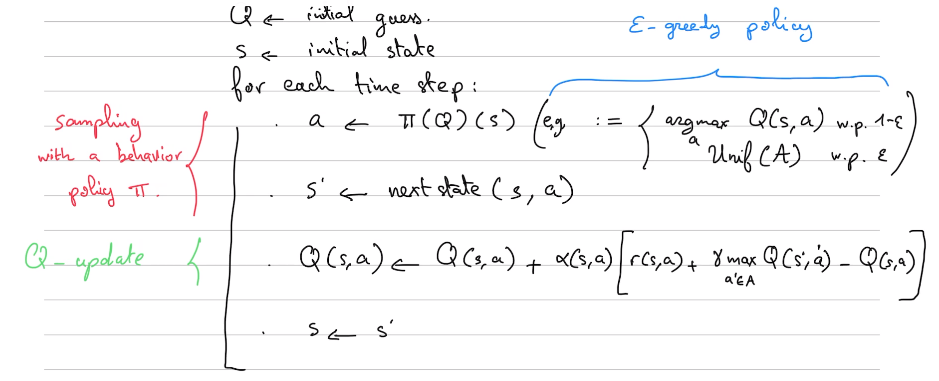 Q ← initial guess.
ε-greedy policy
s ← initial state
for each time step:
sampling
with a behavior
policy π.
. a ← π(Q)(s) (e.g := { argmax_a Q(s,a) w.p. 1-ε
Unif(A) w.p. ε )
. s' ← next state (s, a)
Q-update
. Q(s,a) ← Q(s,a) + α(s,a) [r(s,a) + γ max_{a'∈A} Q(s',a') - Q(s,a)]
. s ← s'